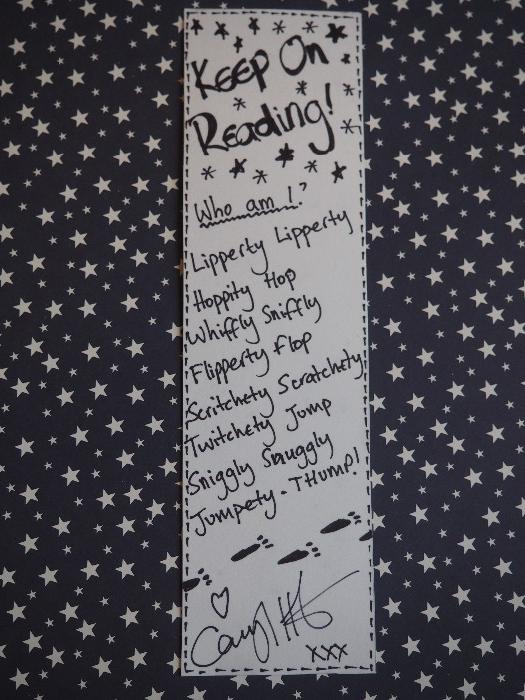 Keep On
Reading!
Who am I?
Lipperty Lipperty
Hoppity Hop
Whiffly Sniffly
Flipperty Flop
Scritchety Scratchety
Twitchety Jump
Sniggly Snuggly
Jumpety - THUMP!
xxx